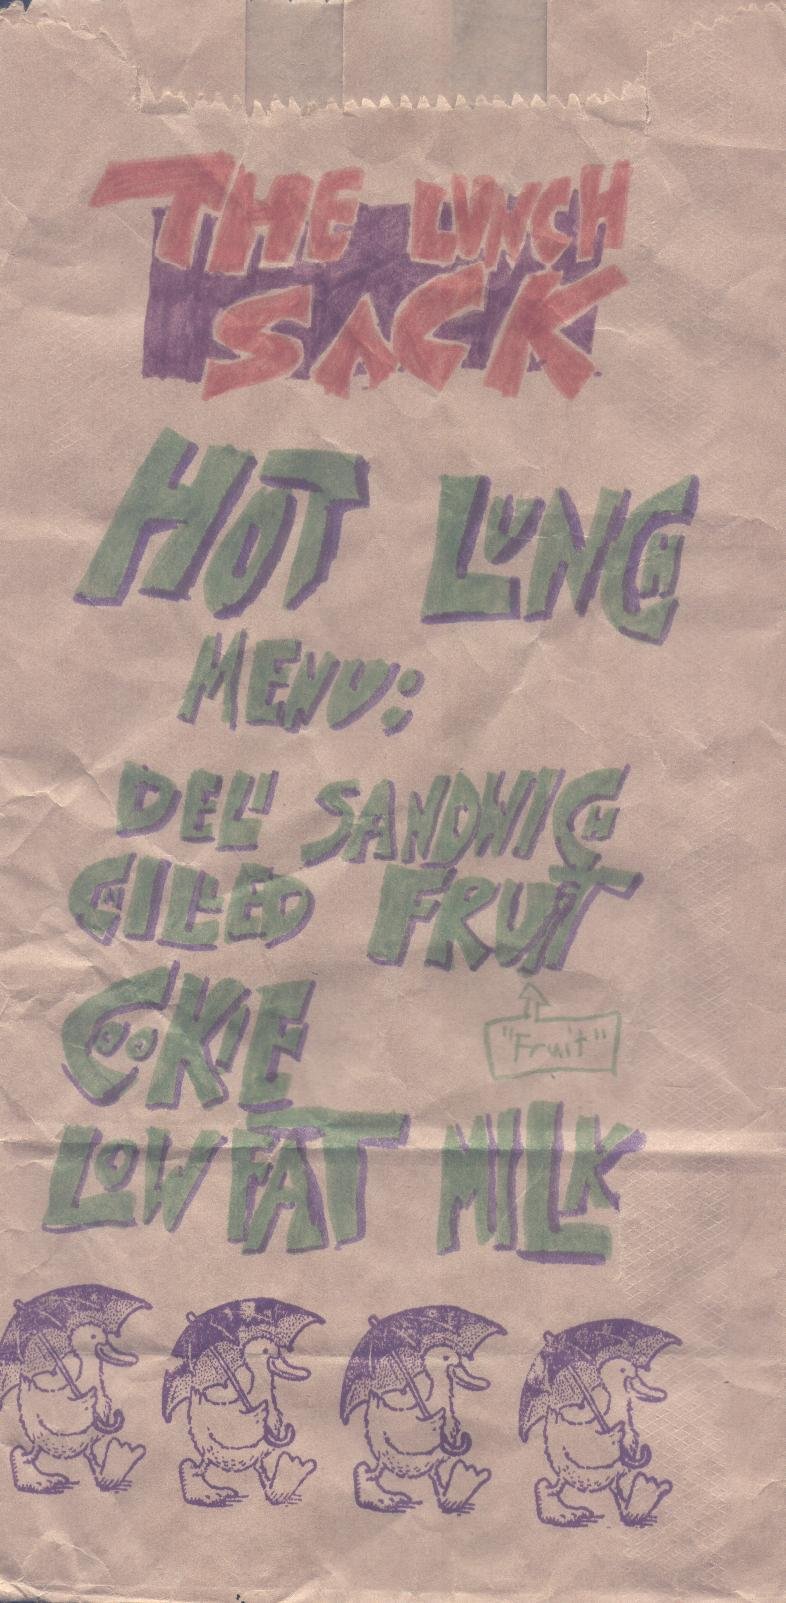 THE LUNCH
SACK
HOT LUNCH
MENU:
DELI SANDWICH
CHILLED FRUIT
"Fruit"
COOKIE
LOWFAT MILK